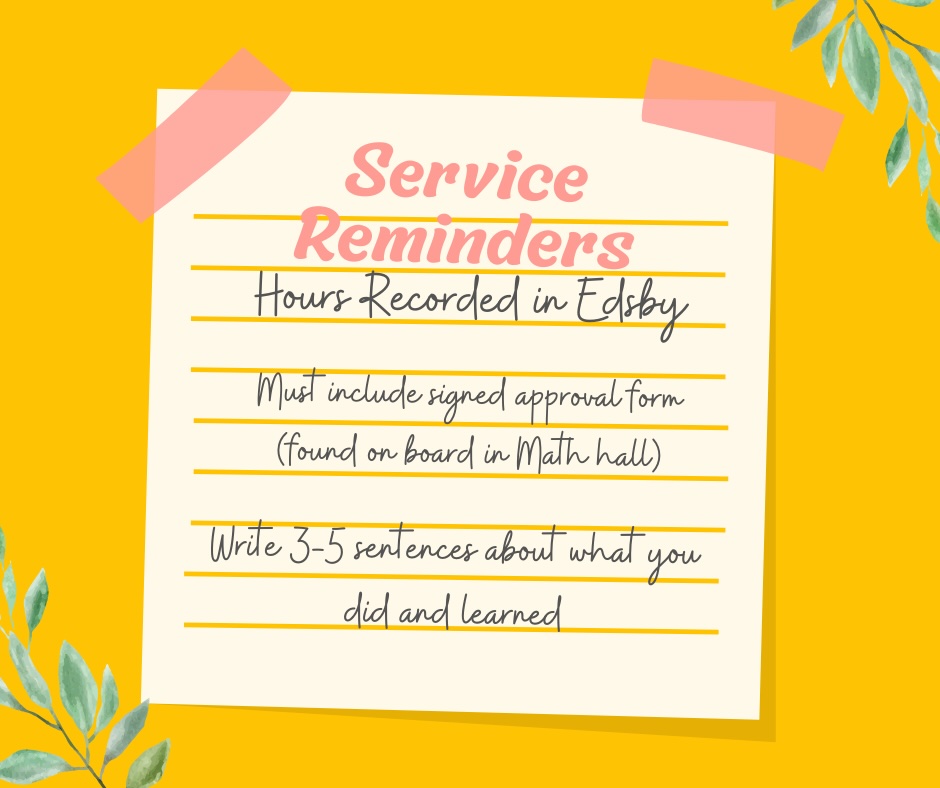 Service
Reminders
Hours Recorded in Edsby
Must include signed approval form
(found on board in Math hall)
Write 3-5 sentences about what you
did and learned